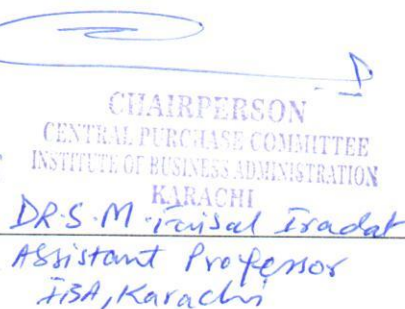 CHAIRPERSON
CENTRAL PURCHASE COMMITTEE
INSTITUTE OF BUSINESS ADMINISTRATION
KARACHI
DR.S.M.Faisal Iradat
Assistant Professor
IBA, Karachi